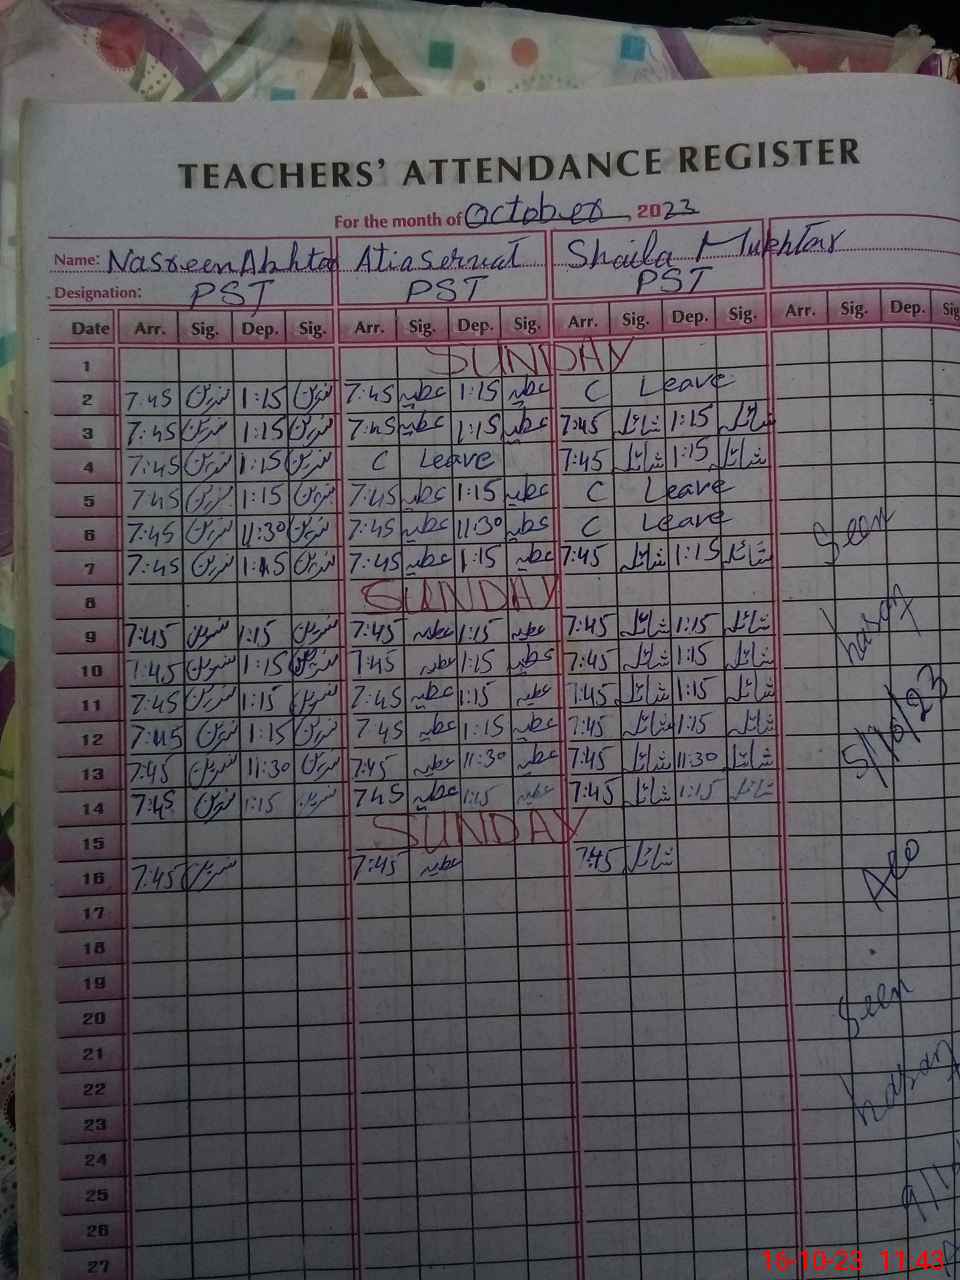 TEACHERS' ATTENDANCE REGISTER
For the month of October, 2023
Name: Nasreen Akhtar Atia Serwat Shaila Mukhtar
Designation: PST PST PST
Date Arr. Sig. Dep. Sig. Arr. Sig. Dep. Sig. Arr. Sig. Dep. Sig. Arr. Sig. Dep. Sig
1 SUNDAY
2 7:45 نسرین 1:15 نسرین 7:45 عطیہ 1:15 عطیہ C Leave
3 7:45 نسرین 1:15 نسرین 7:45 عطیہ 1:15 عطیہ 7:45 شائلہ 1:15 شائلہ
4 7:45 نسرین 1:15 نسرین C Leave 7:45 شائلہ 1:15 شائلہ
5 7:45 نسرین 1:15 نسرین 7:45 عطیہ 1:15 عطیہ C Leave
6 7:45 نسرین 11:30 نسرین 7:45 عطیہ 11:30 عطیہ C Leave
7 7:45 نسرین 1:15 نسرین 7:45 عطیہ 1:15 عطیہ 7:45 شائلہ 1:15 شائلہ
8 SUNDAY
9 7:45 نسرین 1:15 نسرین 7:45 عطیہ 1:15 عطیہ 7:45 شائلہ 1:15 شائلہ
10 7:45 نسرین 1:15 نسرین 7:45 عطیہ 1:15 عطیہ 7:45 شائلہ 1:15 شائلہ
11 7:45 نسرین 1:15 نسرین 7:45 عطیہ 1:15 عطیہ 7:45 شائلہ 1:15 شائلہ
12 7:45 نسرین 1:15 نسرین 7:45 عطیہ 1:15 عطیہ 7:45 شائلہ 1:15 شائلہ
13 7:45 نسرین 11:30 نسرین 7:45 عطیہ 11:30 عطیہ 7:45 شائلہ 11:30 شائلہ
14 7:45 نسرین 1:15 نسرین 745 عطیہ 1:15 عطیہ 7:45 شائلہ 1:15 شائلہ
15 SUNDAY
16 7:45 نسرین 7:45 عطیہ 7:45 شائلہ
17
18
19
20
21
22
23
24
25
26
27
Seen
5/10/23
Aeo
Seen
16-10-23 11:43